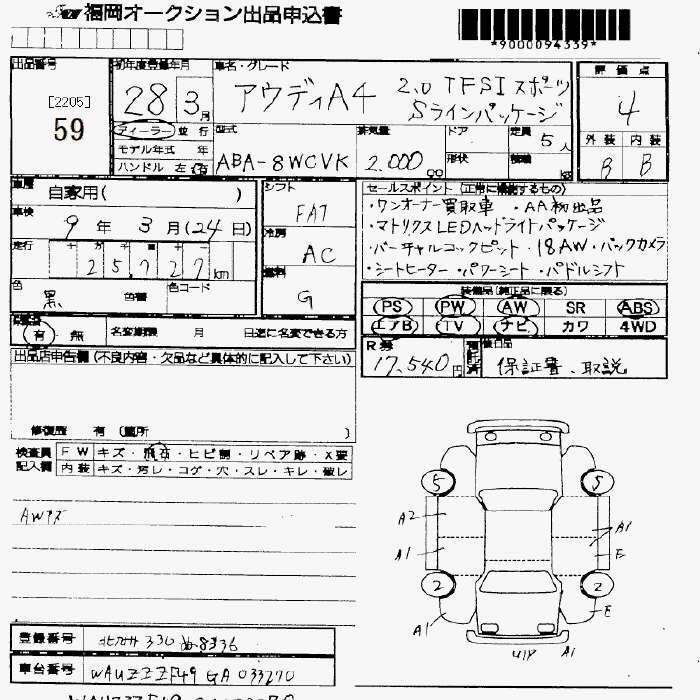 福岡オークション出品申込書
*9000094339*
出品番号
[2205]
59
初年度登録年月
28 3月
車名・グレード
アウディA4 2.0 TFSI スポーツ
Sラインパッケージ
評価点
4
外装 内装
B B
ディーラー 並行
モデル年式 年
ハンドル 左 右
型式
ABA-8WCVK
排気量
2.000 cc
ドア
形状
定員 5人
積載 kg
車歴 自家用( )
車検 9年 3月(24日)
走行 十 万 千 百 十 一
25,727 km
色 黒 色番
色コード
シフト
FAT
冷房
AC
燃料
G
セールスポイント (正常に機能するもの)
・ワンオーナー買取車 ・AA初出品
・マトリクスLEDヘッドライトパッケージ
・バーチャルコックピット・18AW・バックカメラ
・シートヒーター・パワーシート・パドルシフト
装備品(純正品に限る)
PS PW AW SR ABS
エアB TV ナビ カワ 4WD
有・無
名変期限 月 日迄に名変できる方
R券
17,540円
後日品
保証書、取説
出品店申告欄(不良内容・欠品など具体的に記入して下さい)
修復歴 有(箇所 )
検査員
記入欄
FW キズ・飛石・ヒビ割・リペア跡・X要
内装 キズ・汚レ・コゲ・穴・スレ・キレ・破レ
AWキズ
5 5
A2
A1
A1
E
2 2
E
A1
U1P A1
登録番号
330 8336
車台番号 WAUZZZF49GA033270